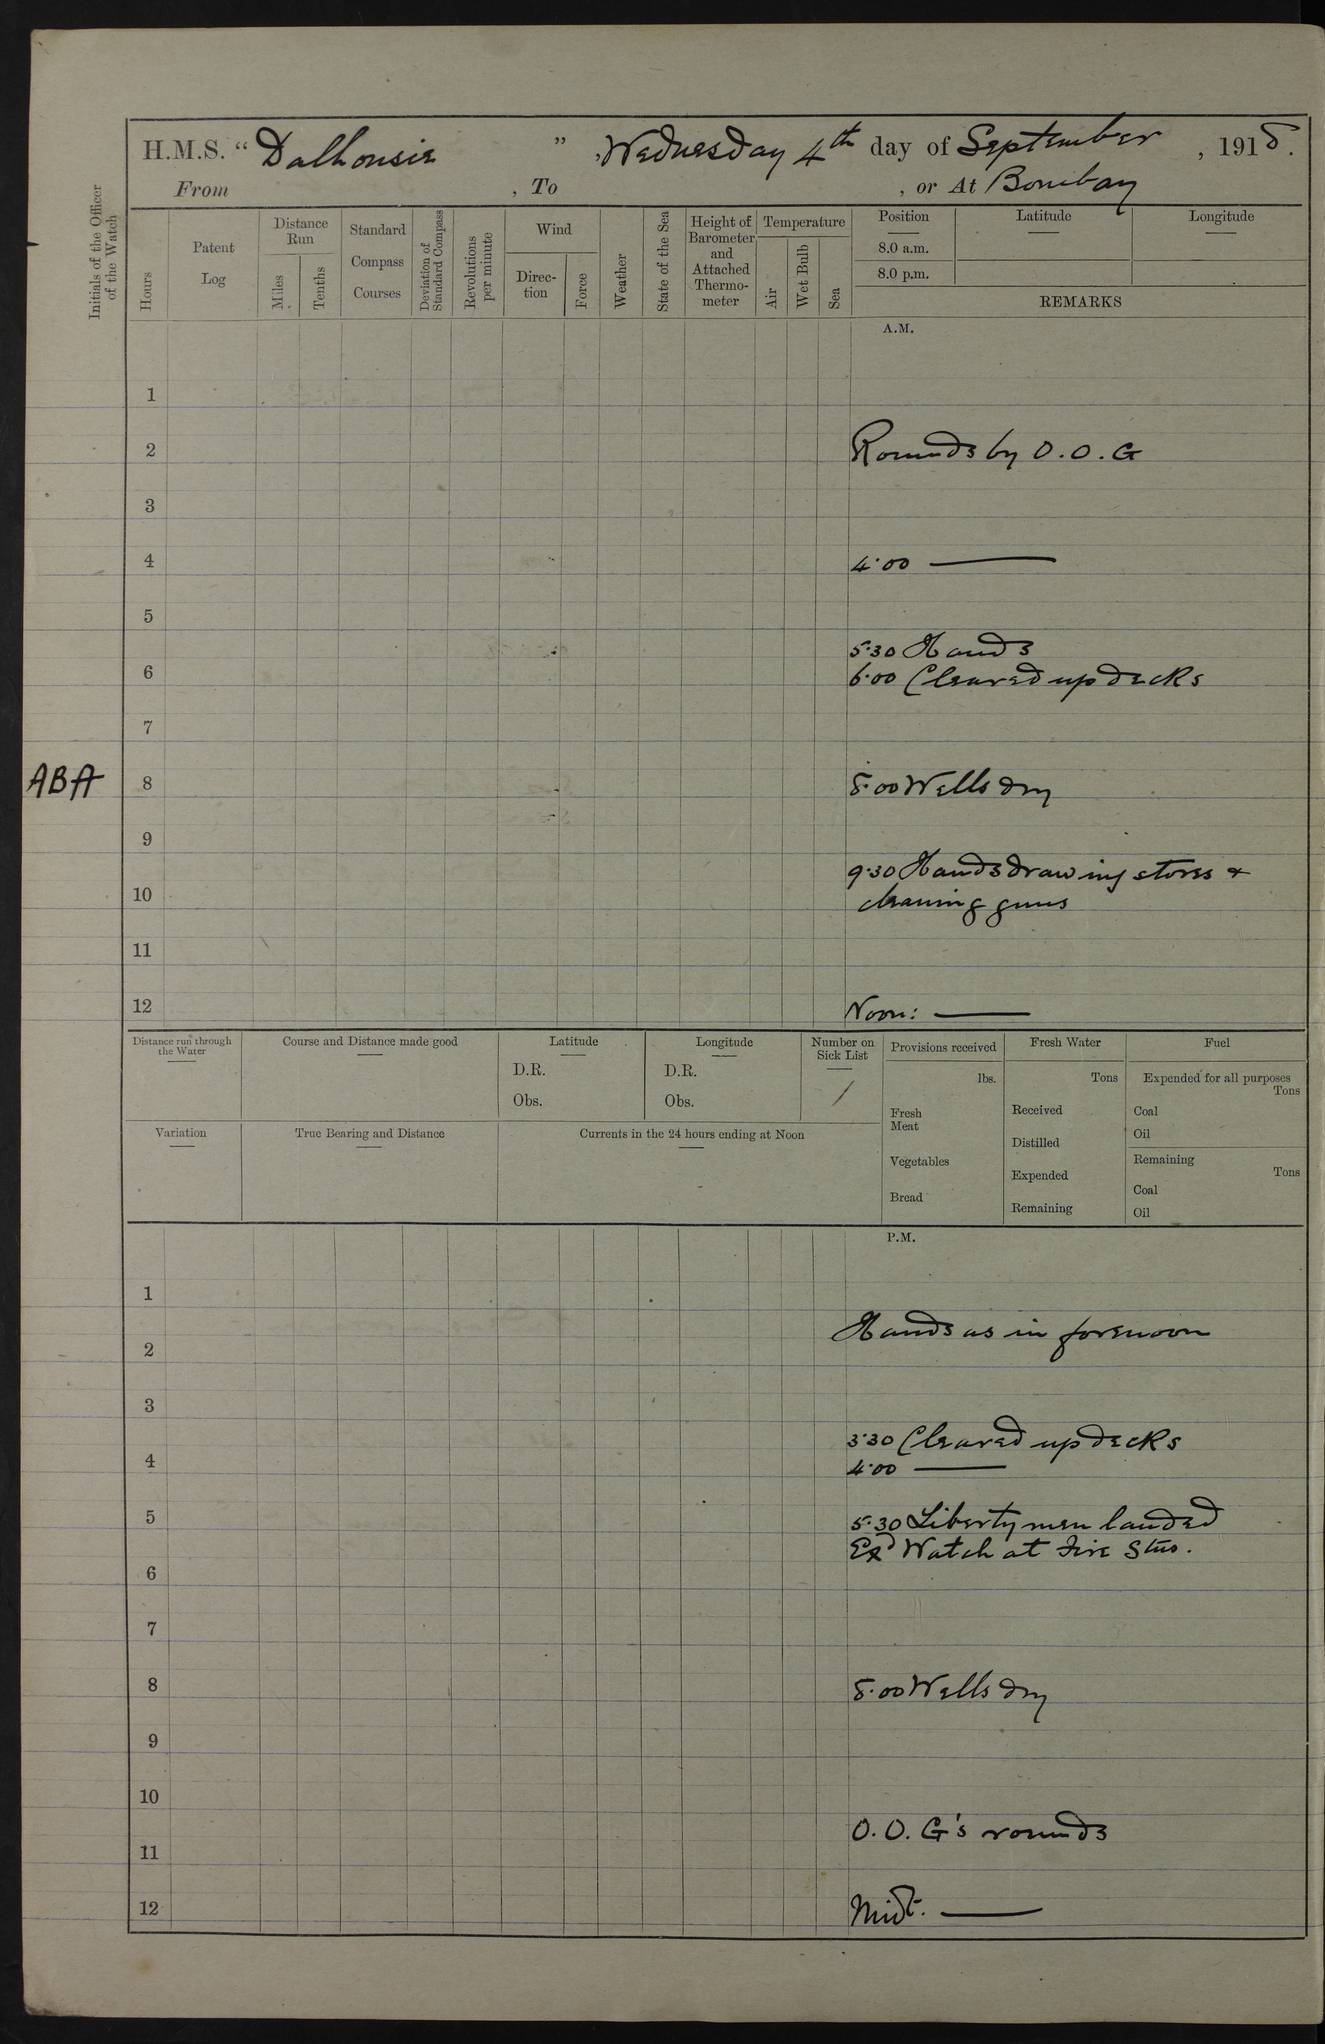 H.M.S. “ Dalhousie ” , Wednesday 4th day of September , 1918.
From , To , or At Bombay
Initials of the Officer of the Watch
Hours
Patent Log
Distance Run
Miles
Tenths
Standard Compass Courses
Deviation of Standard Compass
Revolutions per minute
Wind
Direc-tion
Force
Weather
State of the Sea
Height of Barometer and Attached Thermo-meter
Temperature
Air
Wet Bulb
Sea
Position Latitude Longitude
8.0 a.m.
8.0 p.m.
REMARKS
A.M.
1
2 Rounds by O.O.G
3
4 4·00 ———
5
5·30 Hands
6 6·00 Cleared up decks
7
ABA 8 8·00 Wells dry
9
9·30 Hands drawing stores &
10 cleaning guns
11
12 Noon: ———
Distance run through the Water
Course and Distance made good
Latitude
D.R.
Obs.
Longitude
D.R.
Obs.
Number on Sick List
1
Provisions received
lbs.
Fresh Meat
Vegetables
Bread
Fresh Water
Tons
Received
Distilled
Expended
Remaining
Fuel
Expended for all purposes
Tons
Coal
Oil
Remaining
Tons
Coal
Oil
Variation
True Bearing and Distance
Currents in the 24 hours ending at Noon
P.M.
1
Hands as in forenoon
2
3
3·30 Cleared up decks
4 4·00 ———
5 5·30 Liberty men landed
Exd Watch at Fire Stns.
6
7
8 8·00 Wells dry
9
10
O.O.G's rounds
11
12 Midt. ———